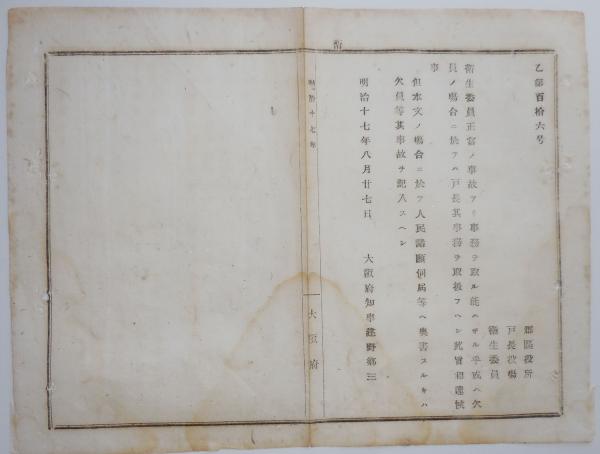 乙第百拾六号
郡區役所
戸長役場
衛生委員
衛生委員正當ノ事故アリ事務ヲ取ル能ハサル乎或ハ欠
員ノ場合ニ於テハ戸長其事務ヲ取扱フヘシ此旨相達候
事
但本文ノ場合ニ於テ人民諸願伺届等ヘ奥書スルキハ
欠員等其事故ヲ記入スヘシ
明治十七年八月廿七日
大阪府知事建野郷三
明治十七年
大阪府